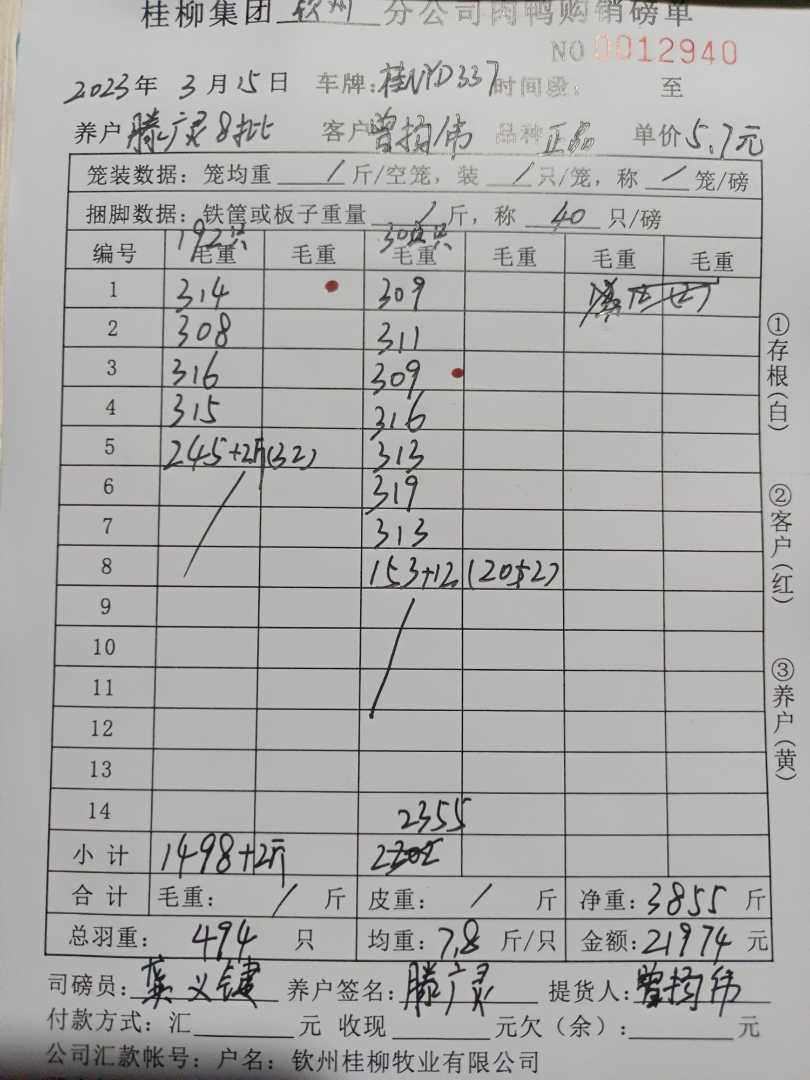 桂柳集团 钦州 分公司肉鸭购销磅单
NO 0012940
2023年 3月15日 车牌:桂NYD337 时间段: 至
养户 滕广灵8批 客户 曾扬伟 品种 正品 单价 5.7元
笼装数据: 笼均重 / 斤/空笼, 装 / 只/笼, 称 / 笼/磅
捆脚数据: 铁筐或板子重量 / 斤, 称 40 只/磅
192只 302只
编号 毛重 毛重 毛重 毛重 毛重 毛重
1 314 309
2 308 311
3 316 309
4 315 316
5 245+2斤(32) 313
6 319
7 313
8 153+12 (20+2)
9
10
11
12
13
14 2355
小计 1498+2斤
合计 毛重: / 斤 皮重: / 斤 净重:3855 斤
总羽重: 494 只 均重:7.8 斤/只 金额:21974 元
司磅员: 龚义键 养户签名: 滕广灵 提货人: 曾扬伟
付款方式: 汇 元 收现 元欠(余): 元
公司汇款帐号: 户名: 钦州桂柳牧业有限公司
①存根(白)
②客户(红)
③养户(黄)